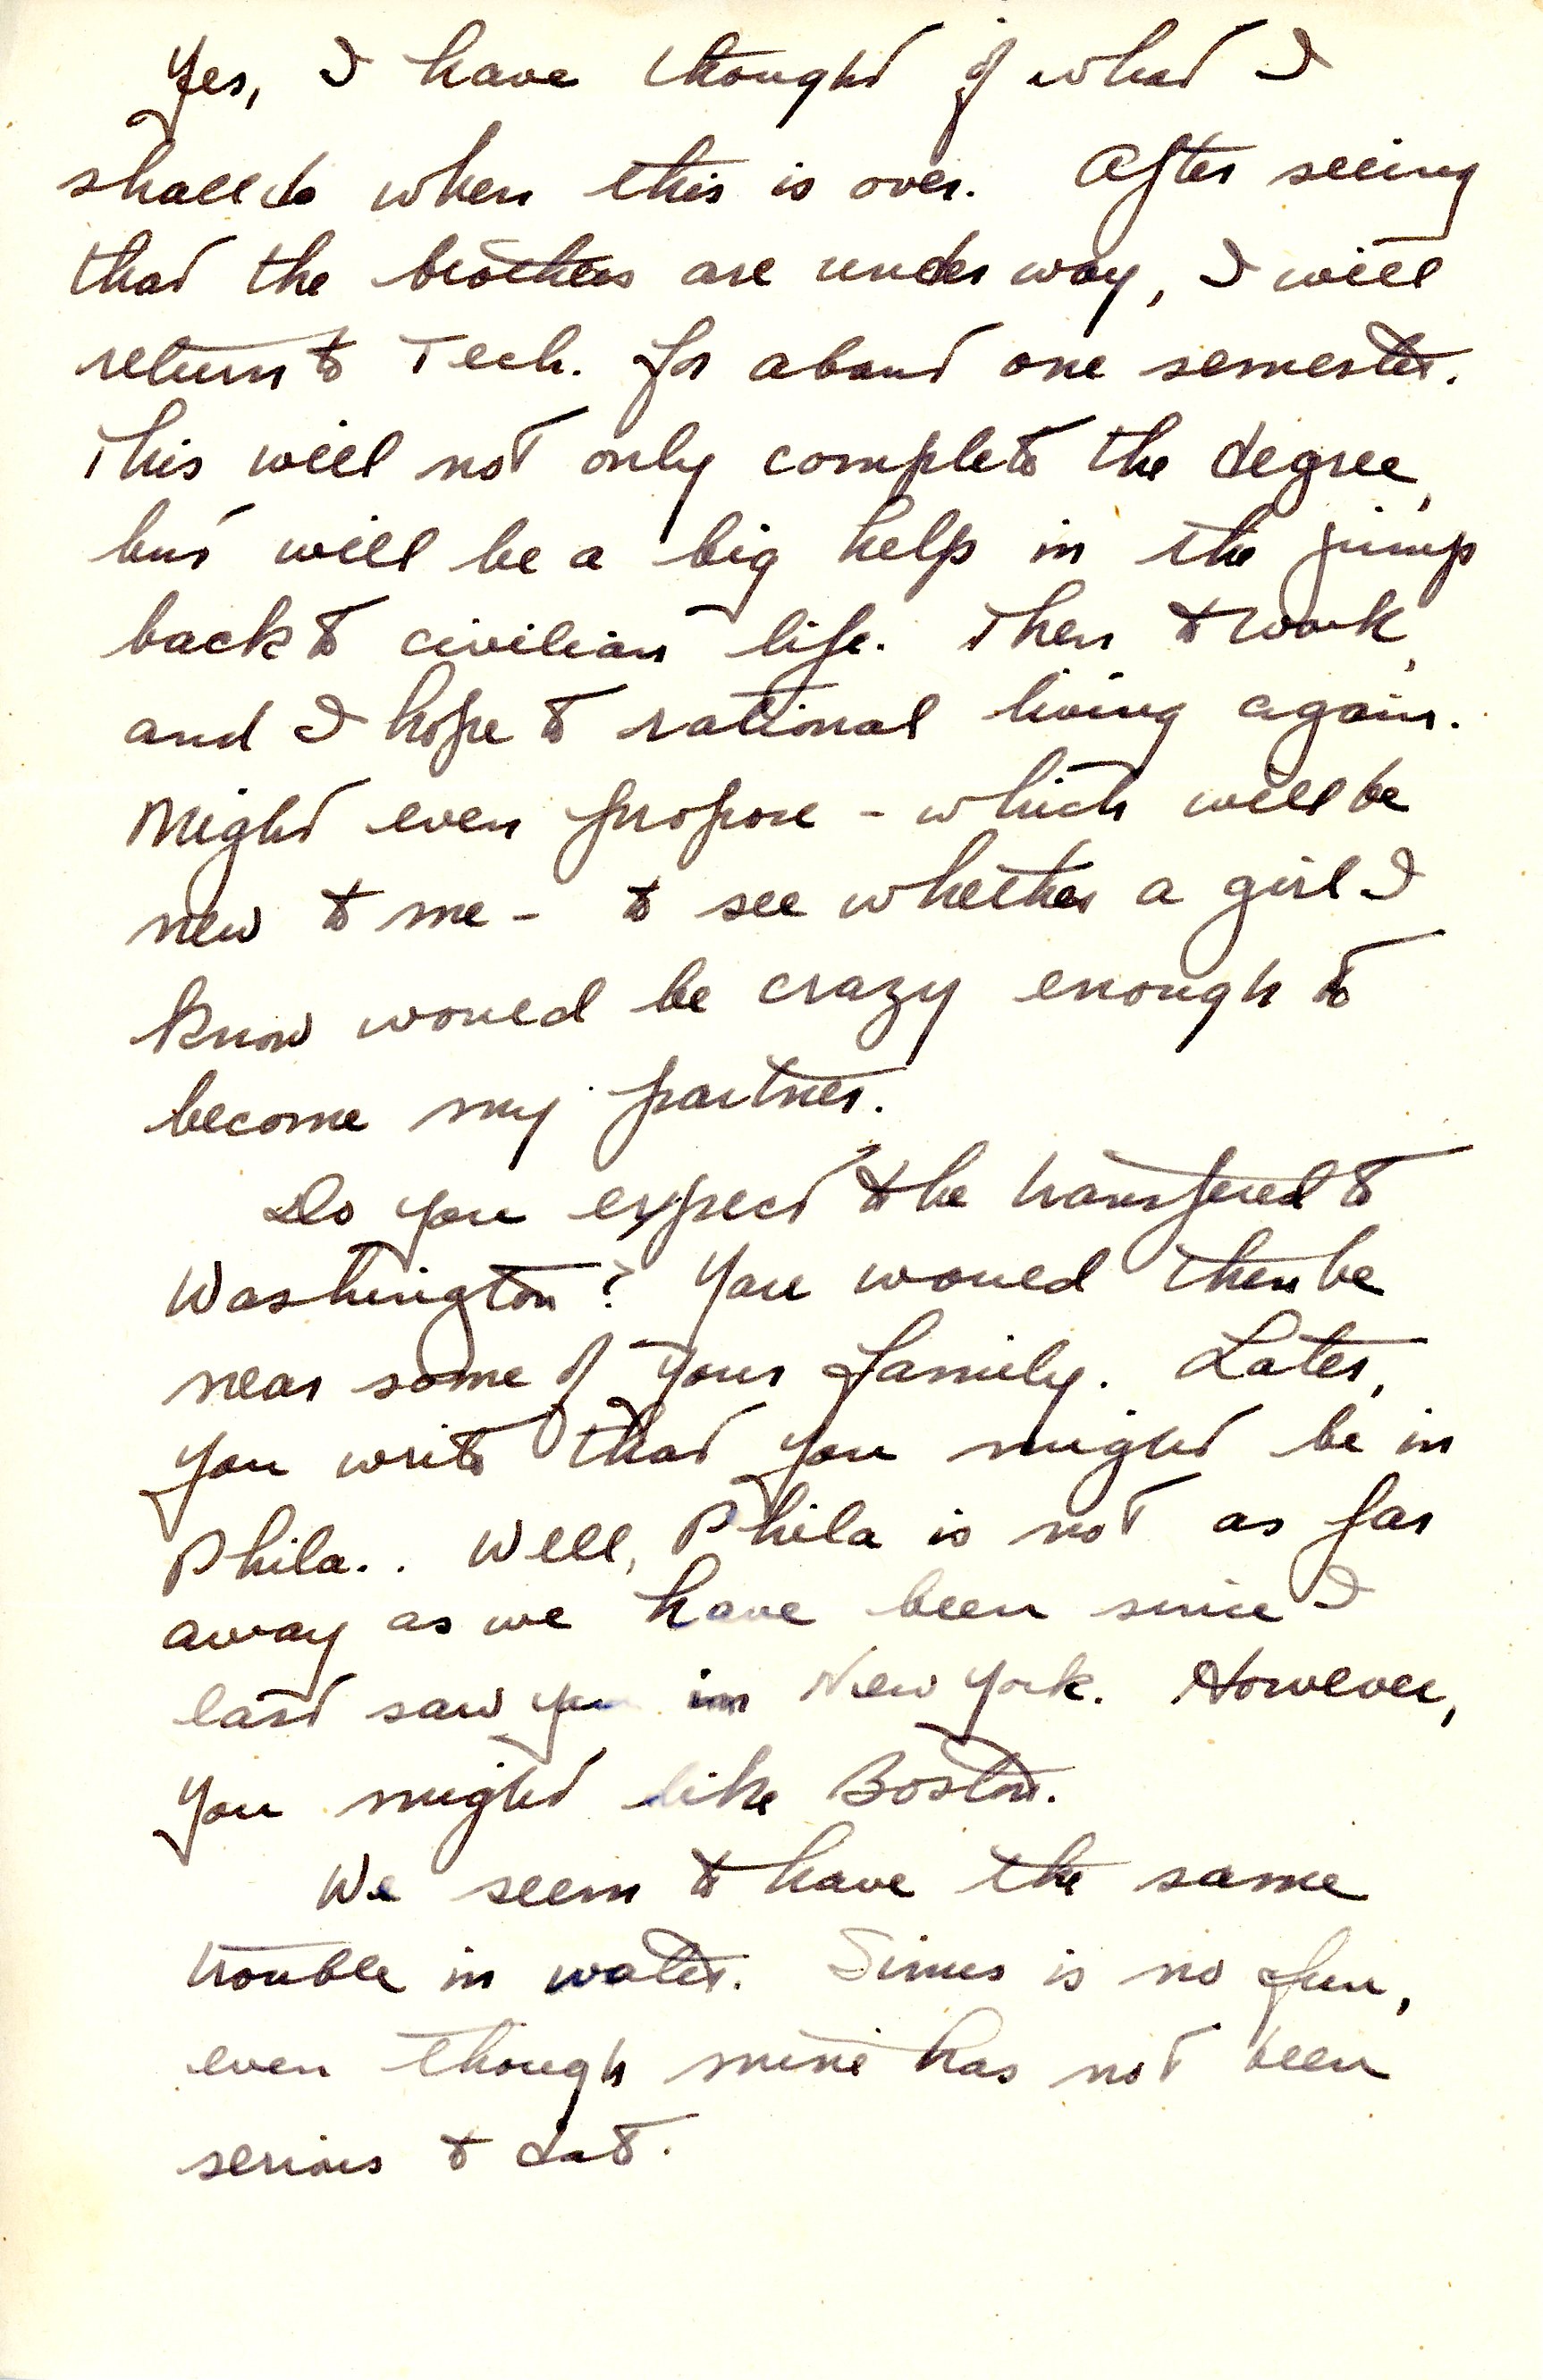 Yes, I have thought of what I
shall do when this is over. After seeing
that the brothers are under way, I will
return to Tech. for about one semester.
This will not only complete the degree,
but will be a big help in the jump
back to civilian life. Then to work,
and I hope to rational living again.
Might even propose - which will be
new to me - to see whether a girl I
know would be crazy enough to
become my partner.
Do you expect to be transfered to
Washington? You would then be
near some of your family. Later,
you write that you might be in
Phila.. Well, Phila is not as far
away as we have been since I
last saw you in New York. However,
you might like Boston.
We seem to have the same
trouble in water. Sinus is no fun,
even though mine has not been
serious to date.